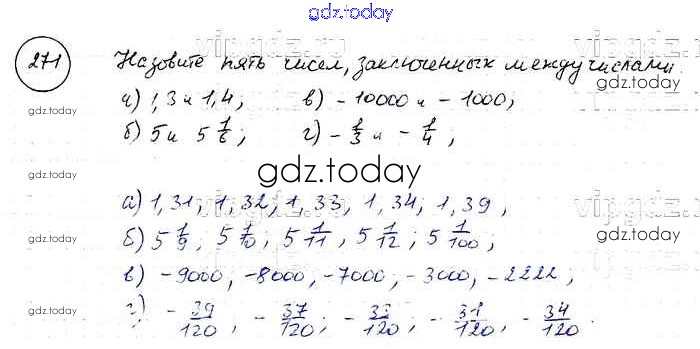 gdz.today
271 Назовите пять чисел, заключенных между числами.
vipgdz.ru
gdz.today
а) 1,3 и 1,4; в) -10000 и -1000;
б) 5 и 5 1/6; г) -1/3 и -1/4;
gdz.today
gdz.today
gdz.today
а) 1,31, 1,32, 1,33, 1,34, 1,39,
vipgdz.ru
б) 5 1/9; 5 1/10; 5 1/11, 5 1/12; 5 1/100;
gdz.today
gdz.today
в) -9000, -8000, -7000, -3000, -2222;
г) -39/120, -37/120; -33/120, -31/120, -34/120.
gdz.today
gdz.today